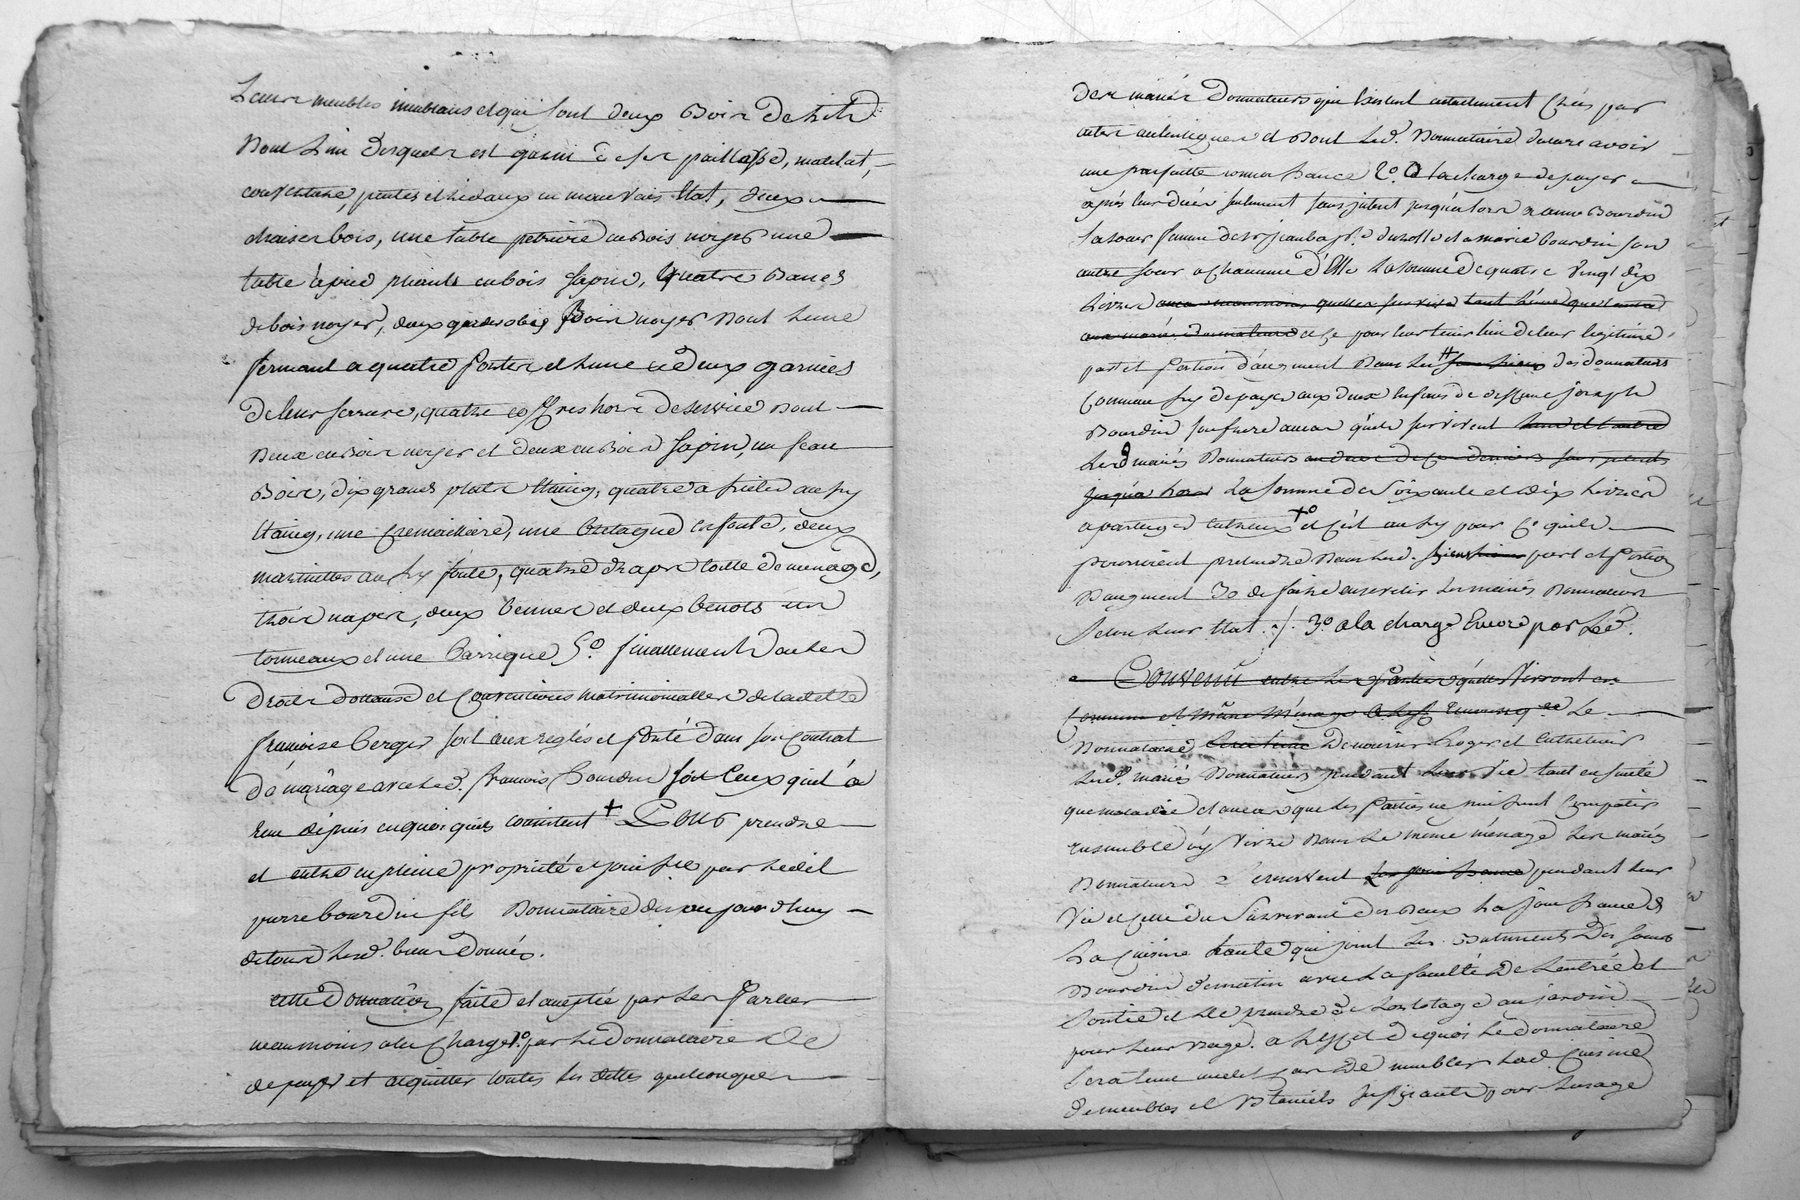 Leurs meubles meublans et qui sont deux Bois de Lits
Dont L'un desquels est garni de sa paillasse, matelat,
couverture, pentes et Rideaux en mauvais Etat, deux
chaises bois, une table petriere en bois noyer une
table à pied pliants en bois sapin, Quatre Bancs
de bois noyer, deux garderobes Bois noyer Dont Lune
fermant a quatre portes et Lune a deux garnies
de leur serrure, quatre coffres hors de service Dont
Deux en Bois noyer et deux en Bois sapin, un seau
Bois, dix grands plats Etaing, quatre assietes aussy
Etaing, une cremaillière, une Bretagne en fonte, deux
marmittes aussy fonte, quatre draps toille de menage,
trois napes, deux bennes et deux benots un
tonneaux et une Barrique 5º finallement de tous Les
droits dottaux et Conventions matrimonialles de ladite
françoise Berger soit aux reglés et porté dans son Contrat
de mariage avec Led. françois Bourdin soit Ceux quil a
Eeu depuis en quoi quils consistent + Pour prendre
et entre en pleine propriété et jouissce par Ledit
pierre bourdin fils Donnataire des ce jourdhuy
de tous Lesd. biens Donnés.
cette donnation faite et aceptée par Les Parties
neanmoins a la Charge 1º par Le donnataire De
de payer et acquitter toutes les dettes quelconques
Des mariés Donnateurs qui Existent actuellement Créés par
actes autentiques et Dont Led. Donnataire declare avoir
une parfaite connoissance 2º a la charge de payer
après leur décés seulement sans jnteret jusqu'alors a anne Bourdin
sa soeur femme de sr jean bapte. et a marie bourdin son
autre soeur a Chacune d'Elle La somme de quatre Vingt dix
Livres tant
aux mariés donnateurs et ce pour leur tenir lieu de leur legitime
part et portion d'augment Dans Les # des donnateurs
Comme aussy de payer aux deux Enfans de deffunt joseph
Bourdin son frere ausau quils survivent Lun et L'autre
Lesd. mariés Donnateurs
jusqu'a Lors La somme de soixante et dix Livres
a partager Entreux +º et C'est aussy pour Ce quils
pourroient pretendre Dans Lesd. part et portion
Daugment 3º de faire ensevelir Les mariés Donnateurs
Selon Leur Etat ./. 3º a la charge Encore par Led.
Convenu entre Les Parties quelles Vivront en
Commun et même Ménage Le
Donnataire De nourrir Loger et Entretenir
Lesd. mariés Donnateurs pendant Leur Vie tant en santé
que maladie et au cas que les Parties ne puissent Compatir
Ensemble et Vivre Dans Le même ménage Les mariés
Donnateurs se reservent La jouissance pendant leur
Vie et Celle du survivant des deux La jouissance de
La Cuisine haute qui joint Les Batiments des
Bourdin demartin avec La faculté De Lentrée et
Sortie et De prendre de Lortolage au jardin
pour Leur Usage. a L'effet de quoi Le donnataire
sera tenu audit Cas De meubler Lad. Cuisine
de meubles et Utancils suffizants pour Lusage